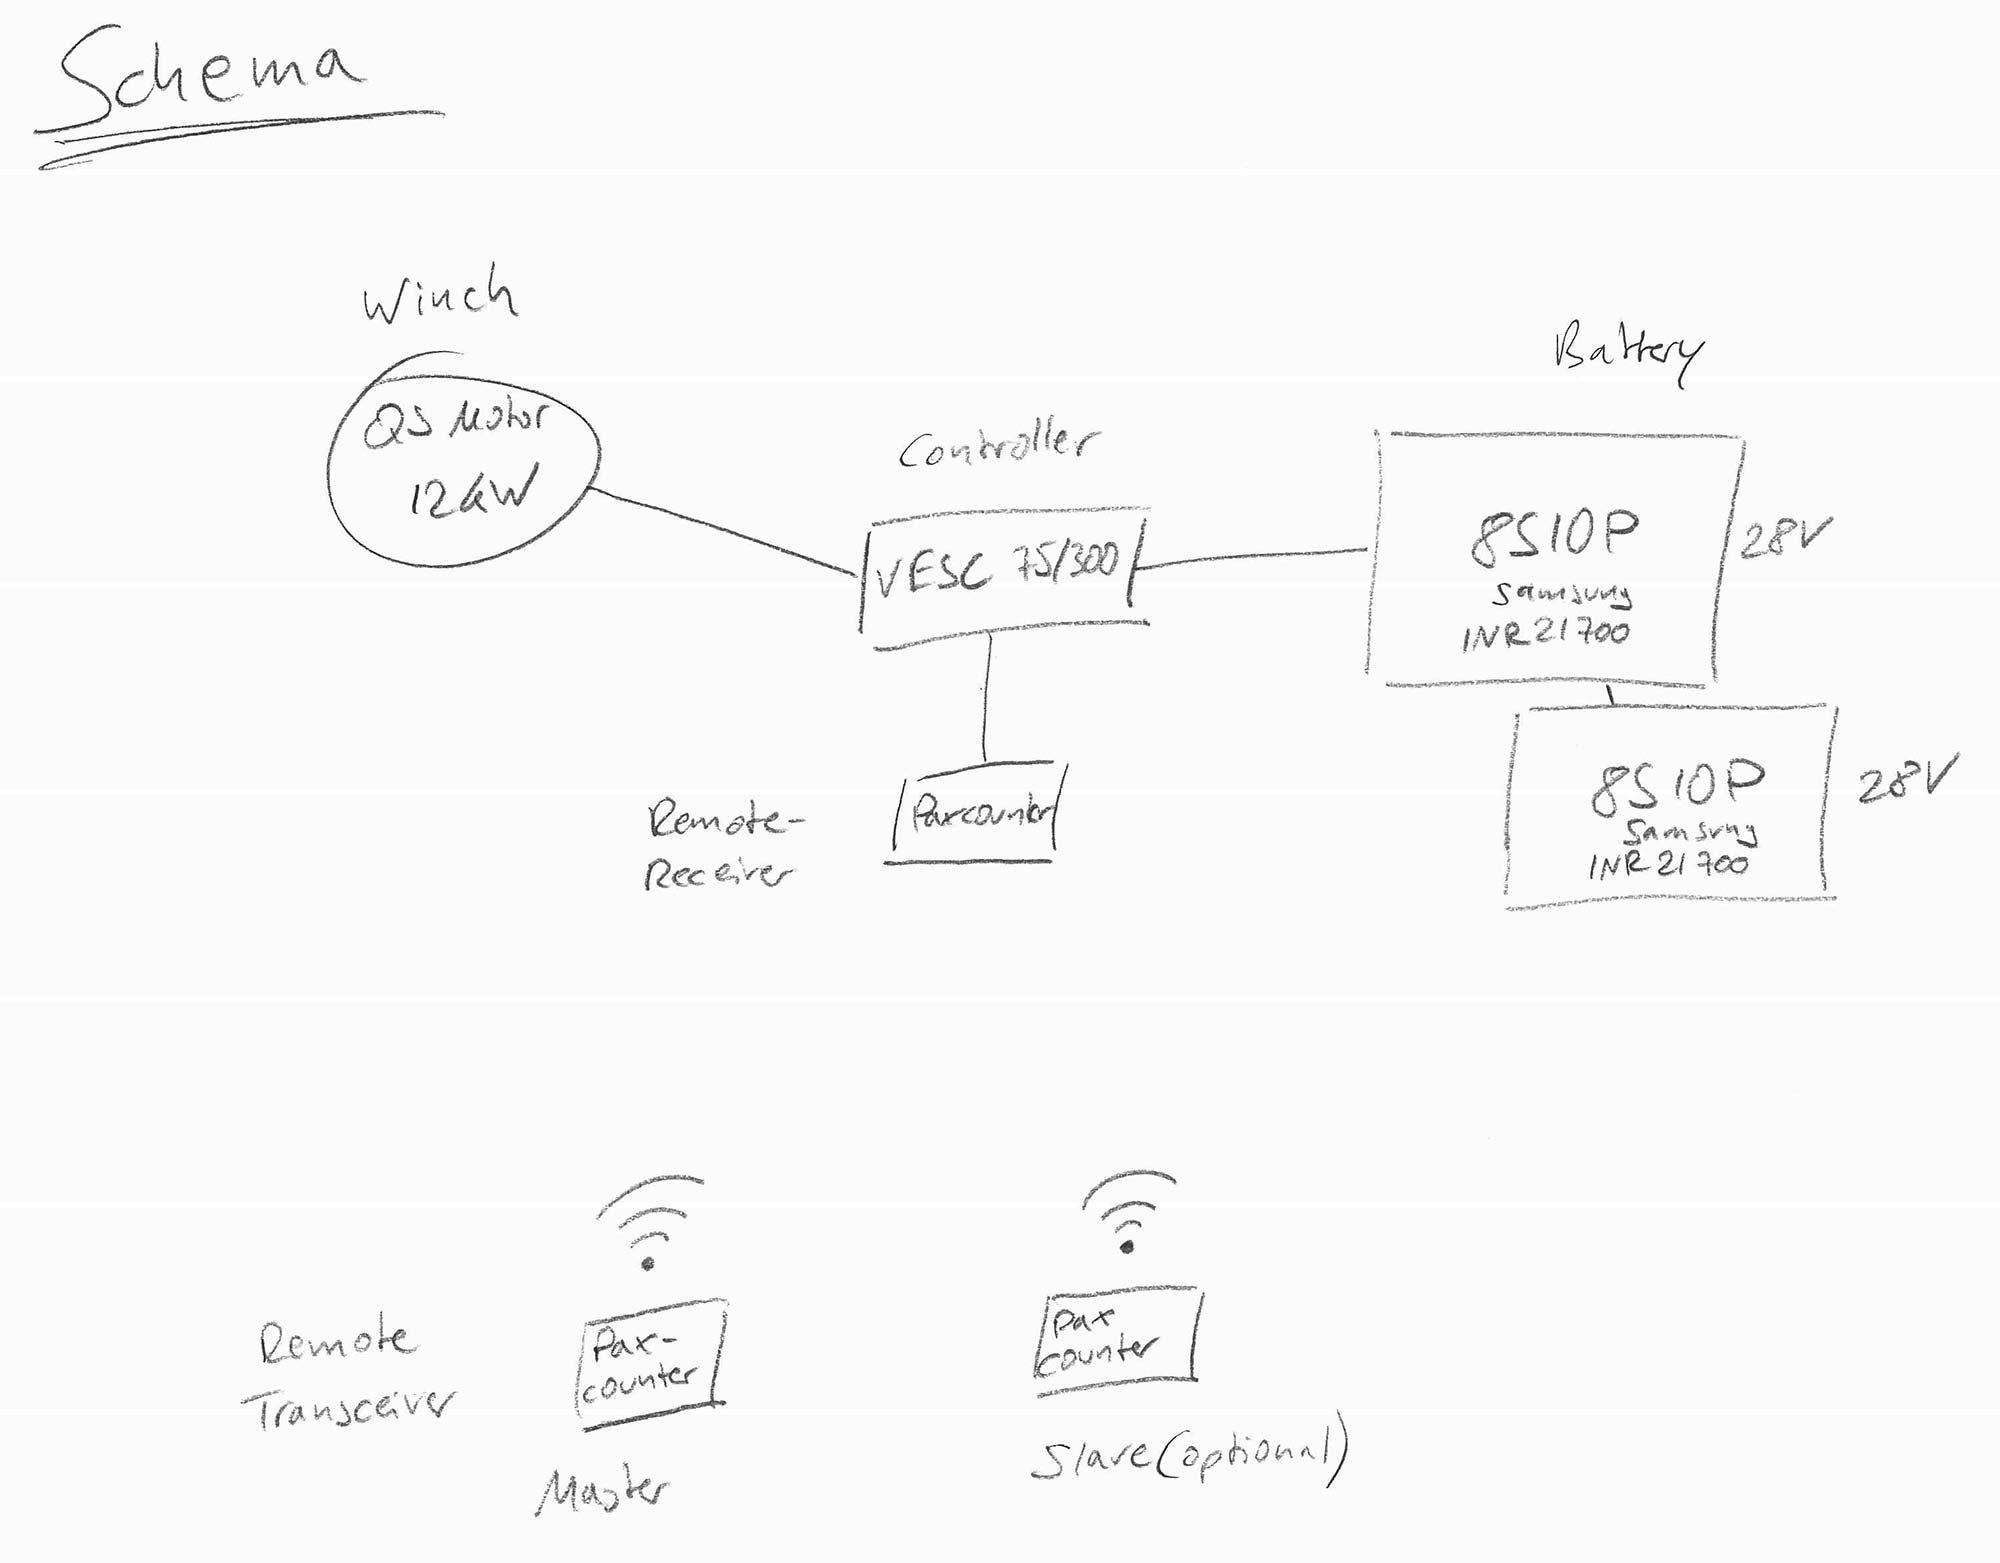 Schema
Winch
QS Motor
12kW
Controller
VESC 75/300
Battery
8S10P
Samsung
INR21700
28V
8S10P
Samsung
INR21700
28V
Remote-
Receiver
Paxcounter
Remote
Transceiver
Pax-
counter
Master
Pax
counter
Slave(optional)